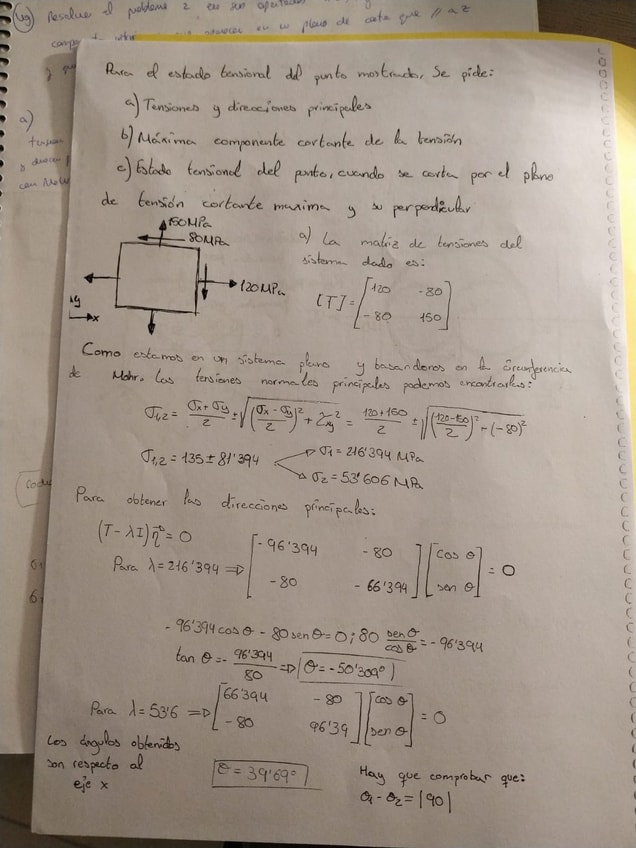 Resolver el problema 2 en sus apartados
Para el estado tensional del punto mostrado, Se pide:
a) Tensiones y direcciones principales
b) Máxima componente cortante de la tensión
c) Estado tensional del punto, cuando se corta por el plano
de tensión cortante maxima y su perpendicular
150MPa
80MPa
120MPa
y
x
a) La matriz de tensiones del
sistema dado es:
[T] = [120 -80
-80 150]
Como estamos en un sistema plano y basandonos en la circunferencia
de Mohr. Las tensiones normales principales podemos encontrarlas:
σ1,2 = (σx + σy)/2 ± √((σx - σy)/2)² + τxy² = (120+150)/2 ± √((120-150)/2)² - (-80)²
σ1,2 = 135 ± 81'394
σ1 = 216'394 MPa
σ2 = 53'606 MPa
Para obtener las direcciones principales:
(T - λI) n = 0
Para λ = 216'394 ⇒ [-96'394 -80
-80 -66'394] [cos θ
sen θ] = 0
-96'394 cos θ - 80 sen θ = 0; 80 sen θ/cos θ = -96'394
tan θ = - 96'394/80 ⇒ θ = -50'309°
Para λ = 53'6 ⇒ [66'394 -80
-80 96'39] [cos θ
sen θ] = 0
Los ángulos obtenidos
son respecto al
eje x
θ = 39'69°
Hay que comprobar que:
θ1 - θ2 = |90|